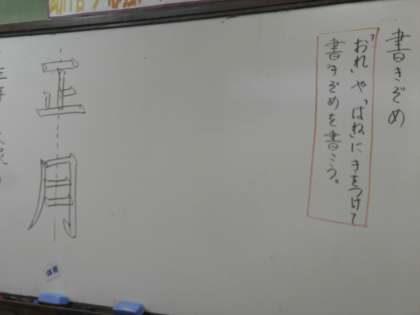 書きぞめ
「おれ」や、「はね」に きをつけて
書きぞめを書こう。
正月